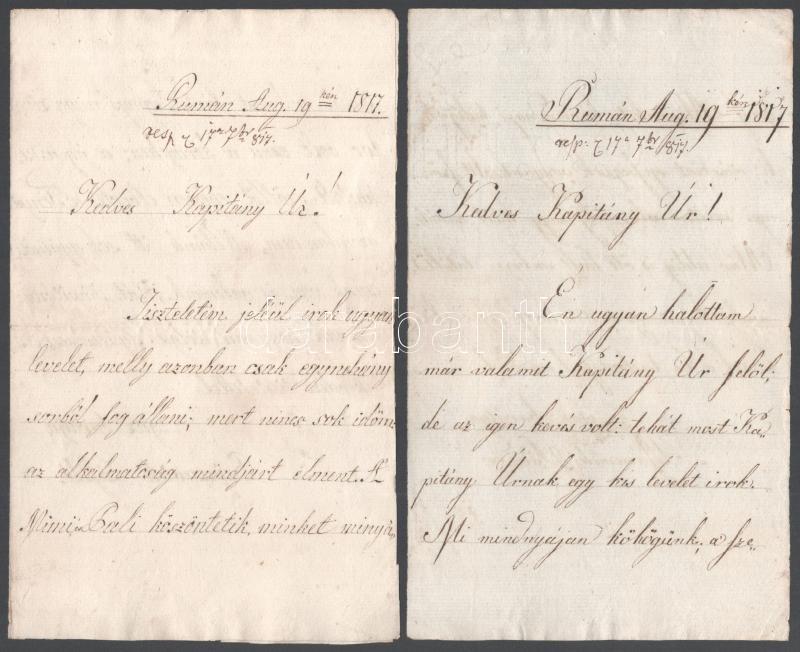 Rumán Aug. 19 kén 1817.
resp 17a 7br 817.
Kedves Kapitány Úr!
Tiszteletem jeléül irok ugyan
levelet, melly azonban csak egynehány
sorból fog állani; mert nincs sok időm
az alkalmatosság mindjárt elment. A'
Mimi és Pali köszöntetik, minket minyá„
Rumán Aug. 19 kén 1817
resp: 17a 7br 817.
Kedves Kapitány Úr!
Én ugyan halottam
már valamit Kapitány Úr felöl;
de az igen kevés volt: tehát most Ka„
pitány Úrnak egy kis levelet irok.
Mi mindnyáján köhögünk; a Sze„
darabanth.com